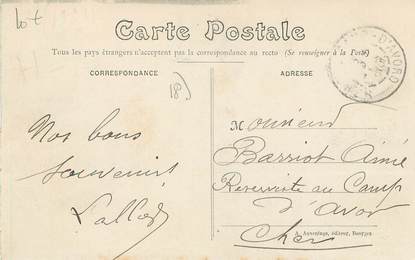 lot
Carte Postale
Tous les pays étrangers n'acceptent pas la correspondance au recto (Se renseigner à la Poste)
CORRESPONDANCE
ADRESSE
D'AVORD
18
Monsieur
Nos bons
souvenirs
Barriot Aimé
Reserviste au Camp
d'Avor
Cher
A. Auxenfans, éditeur, Bourges